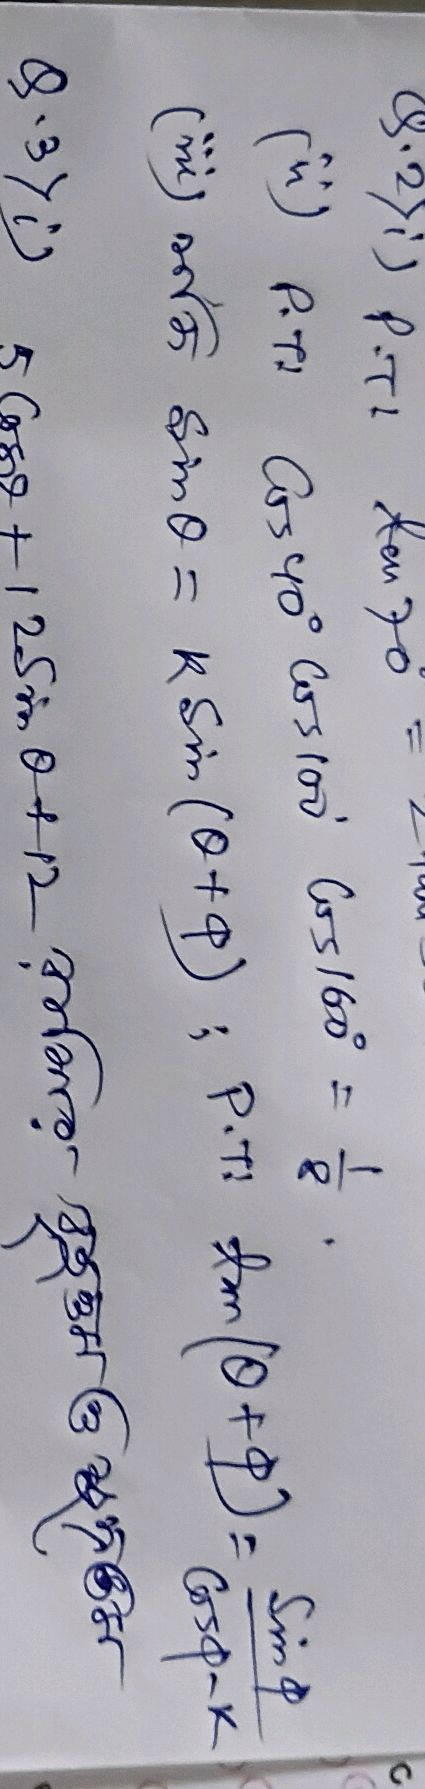 Q.2> i) P.T: tan 70° = 2 tan
(ii) P.T: Cos 40° Cos 100° Cos 160° = 1/8.
(iii) যদি Sin θ = K Sin(θ+φ); P.T: tan(θ+φ) = Sin φ / Cos φ - K
Q.3> i) 5 Cos θ + 12 Sin θ + 12 ও